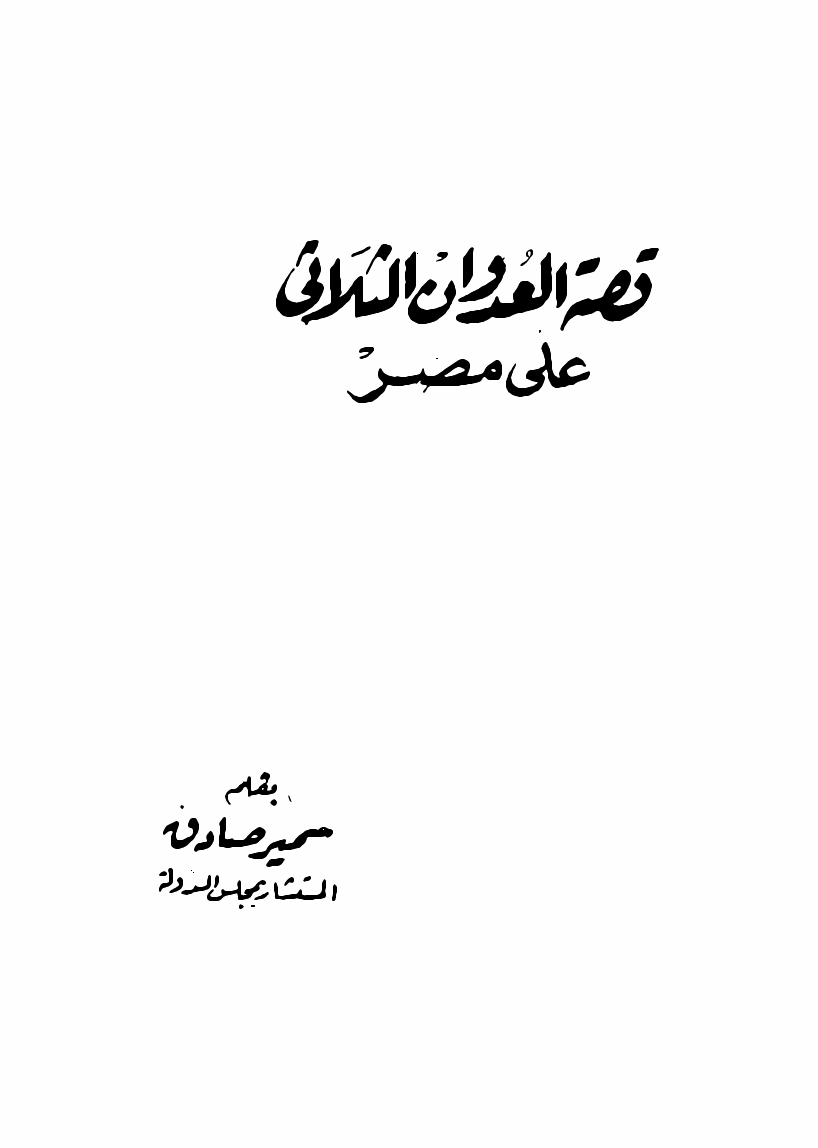 قصة العُدوان الثلَاثى
على مصر
بقلم
سمير صادق
المستشار بمجلس الدولة